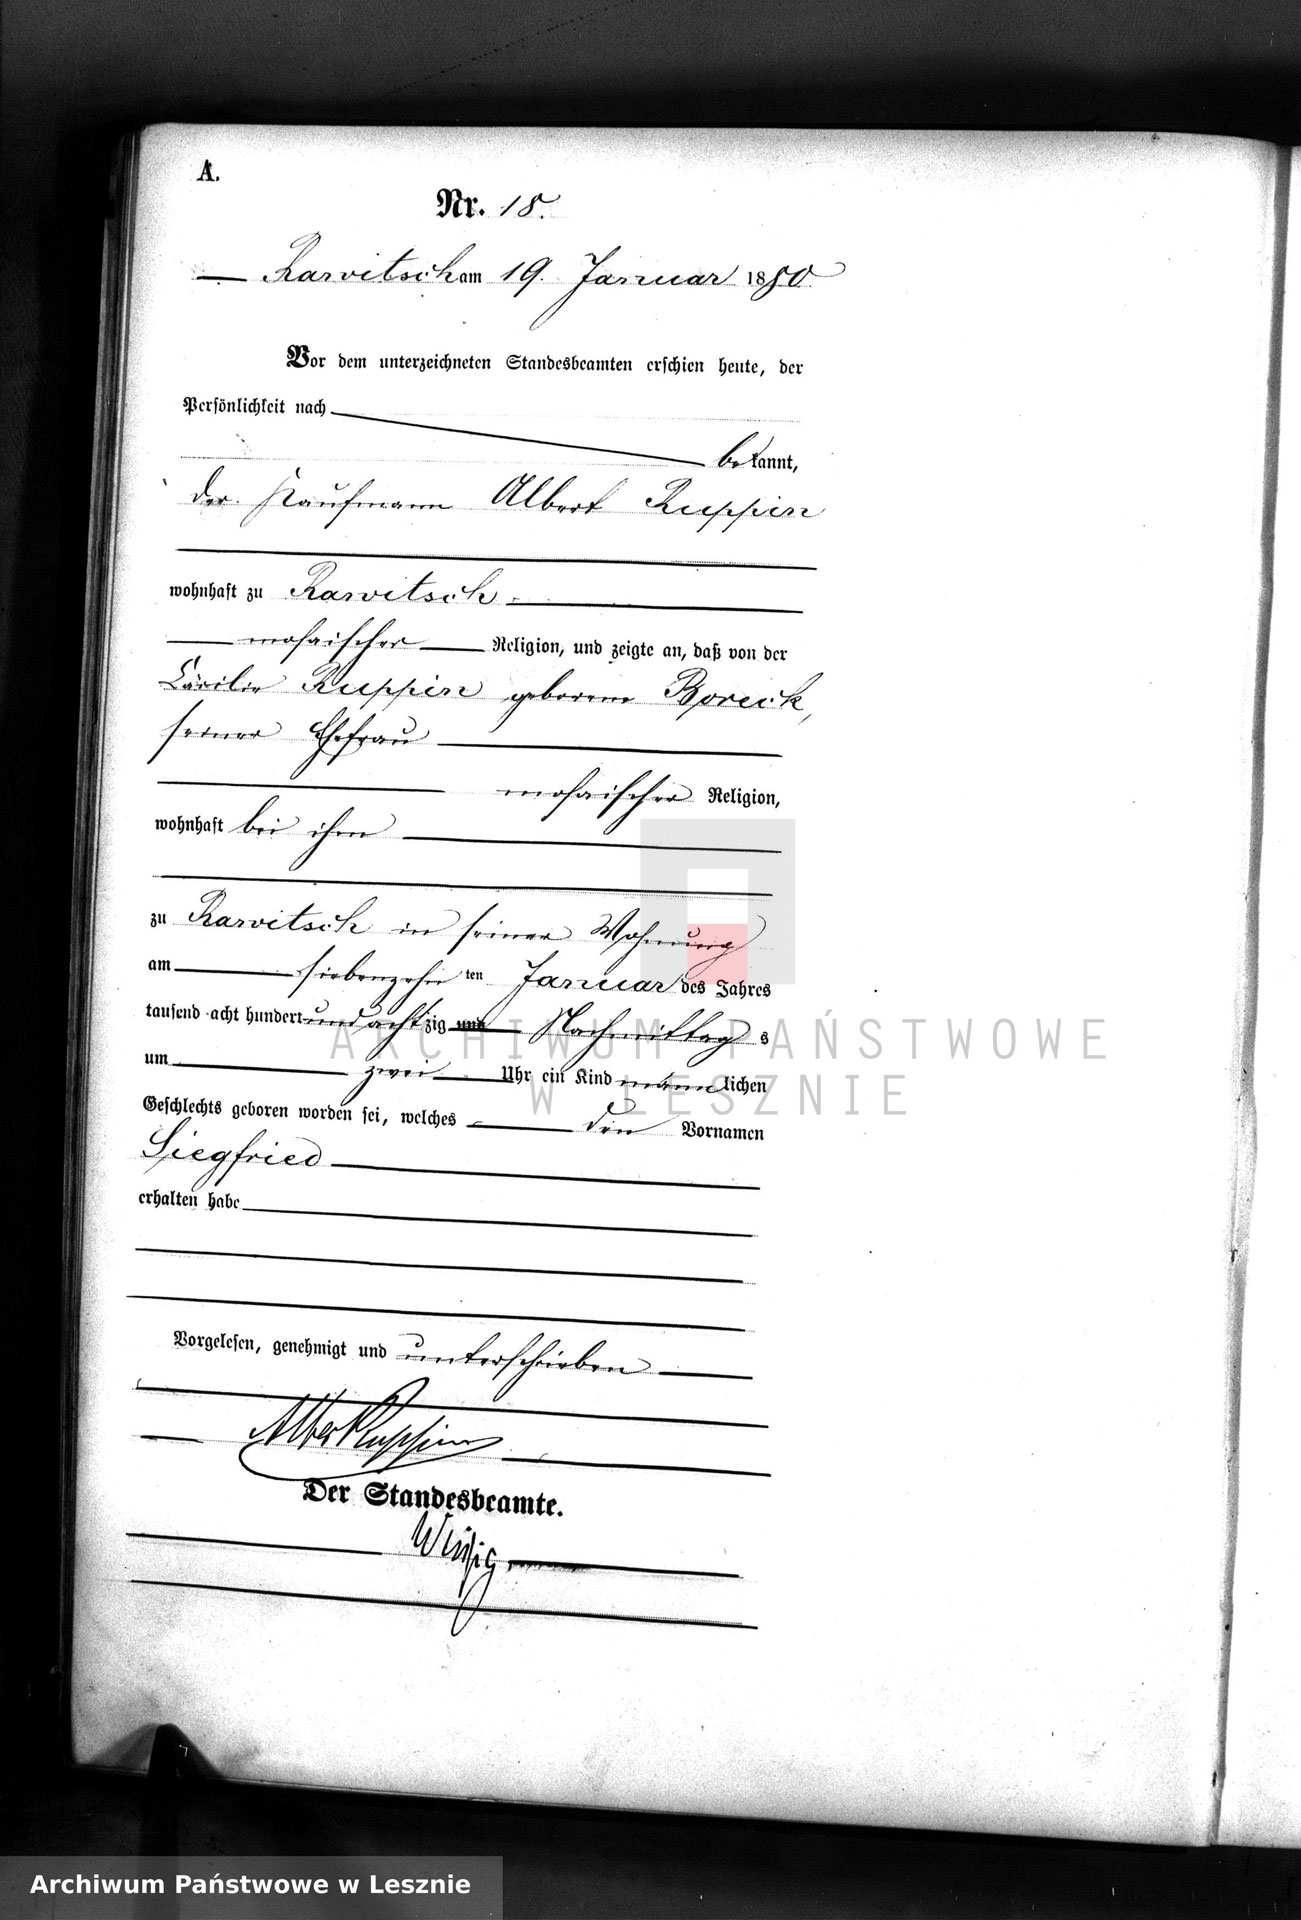 A.
Nr. 18.
Rawitsch am 19. Januar 1880.
Vor dem unterzeichneten Standesbeamten erschien heute, der
Persönlichkeit nach
bekannt,
der Kaufmann Albert Ruppin
wohnhaft zu Rawitsch
mosaischer Religion, und zeigte an, daß von der
Cäcilie Ruppin geborene Boreck,
seiner Ehefrau
mosaischer Religion,
wohnhaft bei ihm
zu Rawitsch in seiner Wohnung
am siebenzehn ten Januar des Jahres
tausend acht hundert und achtzig und Nachmittag s
um zwei Uhr ein Kind männlichen
Geschlechts geboren worden sei, welches den Vornamen
Siegfried
erhalten habe
Vorgelesen, genehmigt und unterschrieben
Albert Ruppin
Der Standesbeamte.
ARCHIWUM PAŃSTWOWE
W LESZNIE
Archiwum Państwowe w Lesznie